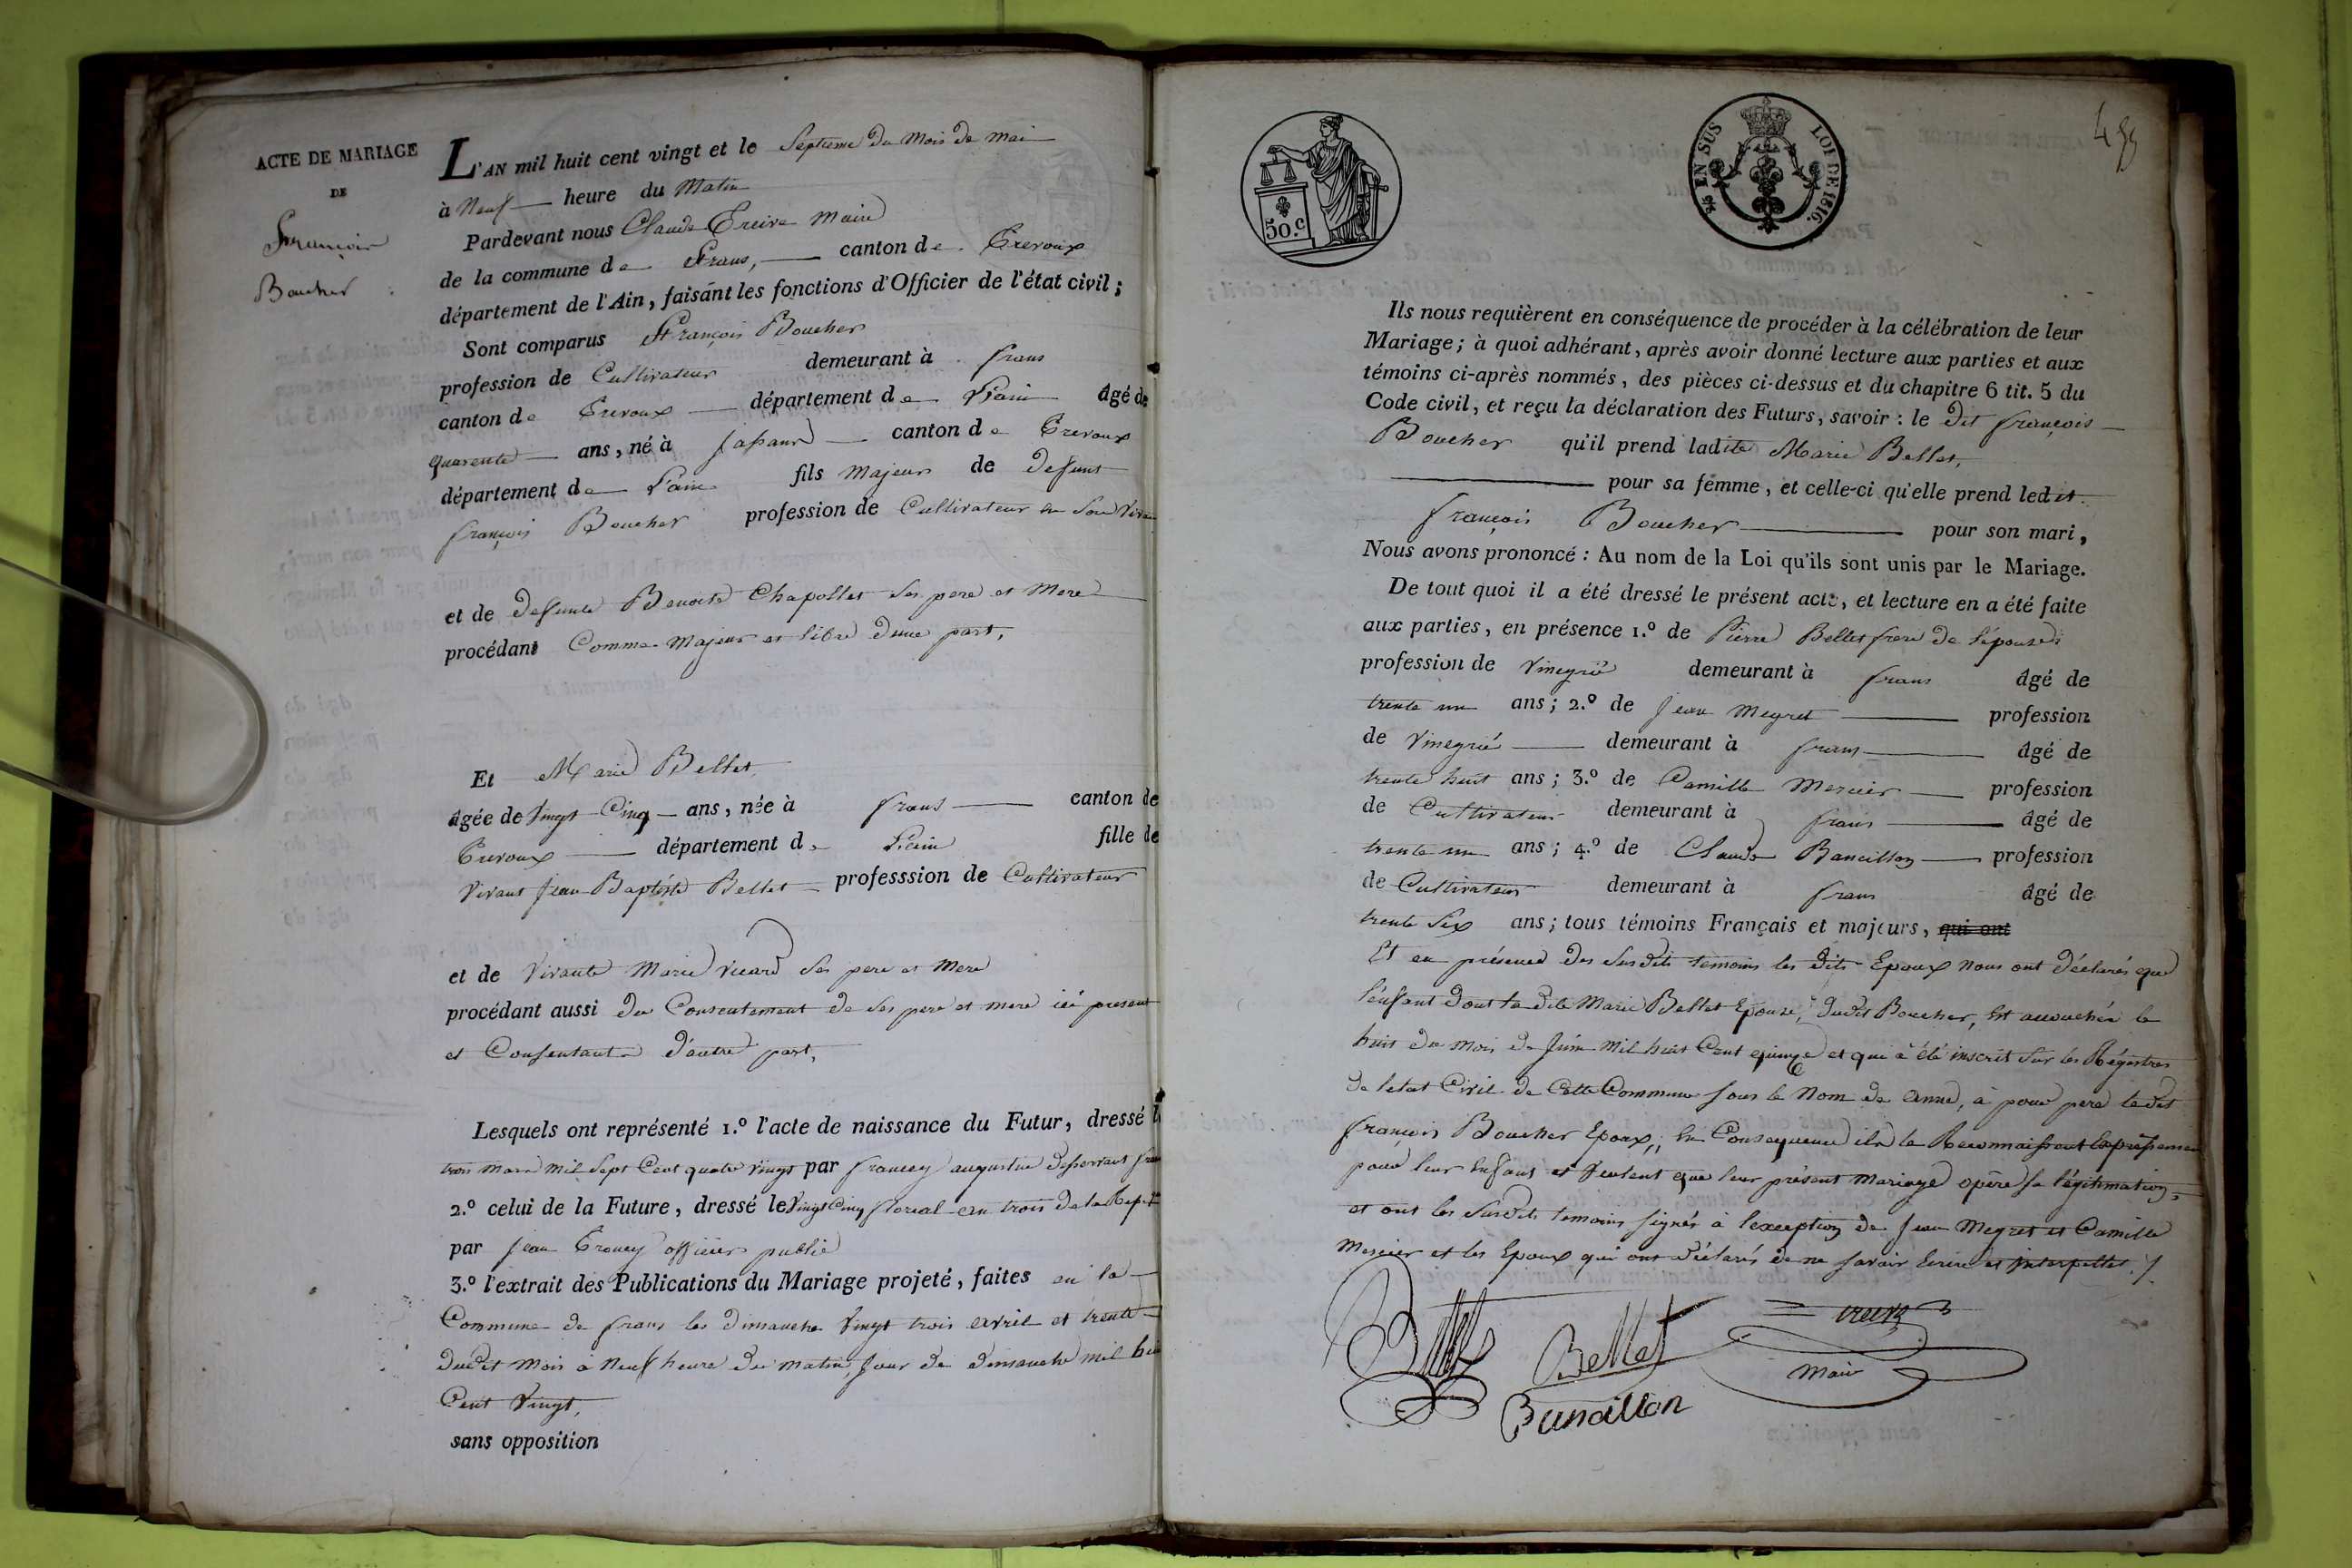 ACTE DE MARIAGE
DE
François
Boucher
L'AN mil huit cent vingt et le Septieme du Mois de mai
à Neuf heure du Matin
Pardevant nous Claude Treive Maire
de la commune de frans, canton de Trevoux
département de l'Ain, faisant les fonctions d'Officier de l'état civil;
Sont comparus François Boucher
profession de Cultivateur demeurant à frans
canton de Trevoux département de l'ain âgé de
quarente ans, né à Jassans canton de Trevoux
département de l'ain fils majeur de defunt
françois Boucher profession de Cultivateur en son vivan
et de deffunte Benoite Chapollet ses pere et Mere
procédant Comme Majeur et libre d'une part,
Et Marie Bellet,
âgée de Vingt Cinq ans, née à frans canton de
Trevoux département de l'ain fille de
Vivant Jean Baptiste Bellet professsion de Cultivateur
et de Vivante Marie vicard ses pere et Mere
procédant aussi du Consentement de ses pere et mere ici present
et Consentant d'autre part,
Lesquels ont représenté 1.º l'acte de naissance du Futur, dressé l
trois mars mil Sept Cent quatre vingt par francey augustin desservant
2.º celui de la Future, dressé le Vingt Cinq floreal an trois de la Rep
par Jean officier public
3.º l'extrait des Publications du Mariage projeté, faites en la
Commune de frans les dimanche Vingt trois avril et trente
dudit mois à Neuf heure du matin, Jour de dimanche mil hui
Cent Vingt,
sans opposition
50.c
EN SUS LOI DE 1816.
Ils nous requièrent en conséquence de procéder à la célébration de leur
Mariage; à quoi adhérant, après avoir donné lecture aux parties et aux
témoins ci-après nommés, des pièces ci-dessus et du chapitre 6 tit. 5 du
Code civil, et reçu la déclaration des Futurs, savoir: le dit françois
Boucher qu'il prend ladite Marie Bellet,
pour sa femme, et celle-ci qu'elle prend ledit
françois Boucher pour son mari,
Nous avons prononcé: Au nom de la Loi qu'ils sont unis par le Mariage.
De tout quoi il a été dressé le présent acte, et lecture en a été faite
aux parties, en présence 1.º de Pierre Bellet frere de l'épouse
profession de Vinegrié demeurant à frans âgé de
trente un ans; 2.º de Jean Megret profession
de Vinegrié demeurant à frans âgé de
trente huit ans; 3.º de Camille Mercier profession
de Cultivateur demeurant à frans âgé de
trente un ans; 4.º de Claude Bancillon profession
de Cultivateur demeurant à frans âgé de
trente Six ans; tous témoins Français et majeurs, qui ont
Et en présence des susdits temoins les dits Epoux nous ont déclarés que
l'enfant dont la dite Marie Bellet Epouse, dudit Boucher, Est accouchée le
huit du mois de Juin mil huit Cent quinze et qui à été inscrit sur les Régistres
de letat Civil de Cette Commune sous le Nom de anne, à pour pere ledit
françois Boucher Epoux, En Consequence ils le Reconnaissent Expressemen
pour leur Enfant et Veulent que leur présent Mariage opère sa légitimation,
et ont les susdits temoins signés à l'exception de Jean Megret et Camille
Mercier et les Epoux qui ont déclarés de ne savoir Ecrire et interpellet ./.
Bellet
Treive
Maire
Bancillon